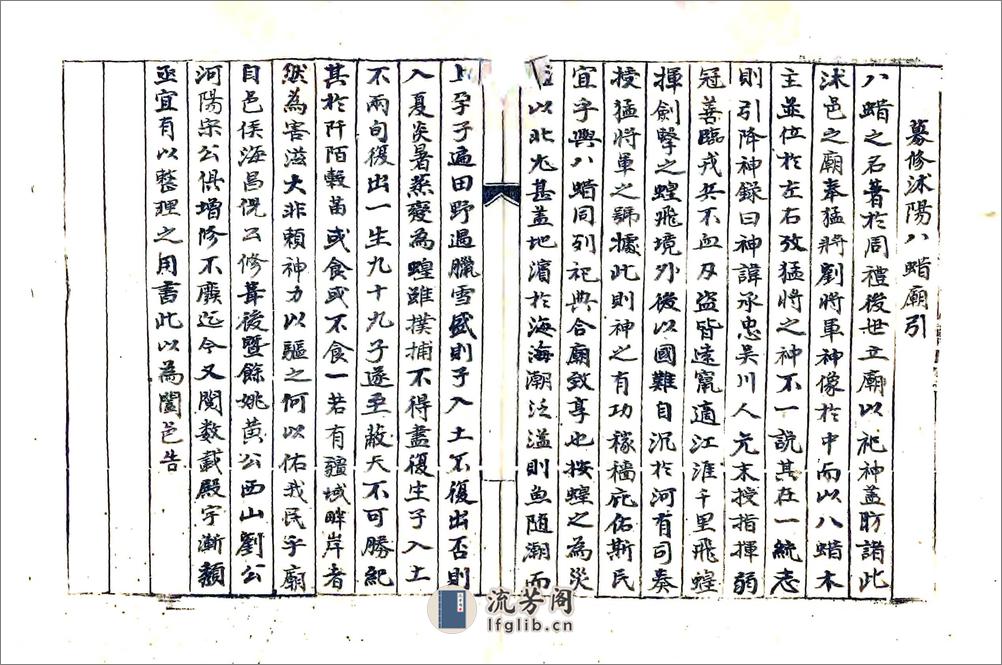 募修沭陽八蜡廟引
八蜡之名著於周禮後世立廟以祀神蓋昉諸此
沭邑之廟奉猛將劉將軍神像於中而以八蜡木
主並位於左右攷猛將之神不一說其在一統志
則引降神録曰神諱承忠吳川人元末授指揮弱
冠善臨戎兵不血刃盜皆遠竄適江淮千里飛蝗
揮劍擊之蝗飛境外後以國難自沉於河有司奏
授猛將軍之號據此則神之有功稼穡庇佑斯民
宜乎與八蜡同列祀典合廟致享也按蝗之為災
以北尤甚蓋地濱於海海潮泛溢則魚随潮而
上孕子遍田野過臘雪盛則子入土不復出否則
入夏炎暑蒸變為蝗雖撲捕不得盡復生子入土
不兩旬復出一生九十九子遂至蔽天不可勝紀
其於阡陌穀苗或食或不食一若有疆域畔岸者
然為害滋大非頼神力以驅之何以佑我民乎廟
自邑侯海昌倪公修葺後暨餘姚黃公西山劉公
河陽宋公俱增修不廢迄今又閱数載殿宇漸頽
亟宜有以整理之用書此以為闔邑告
流芳阁
lfglib.cn